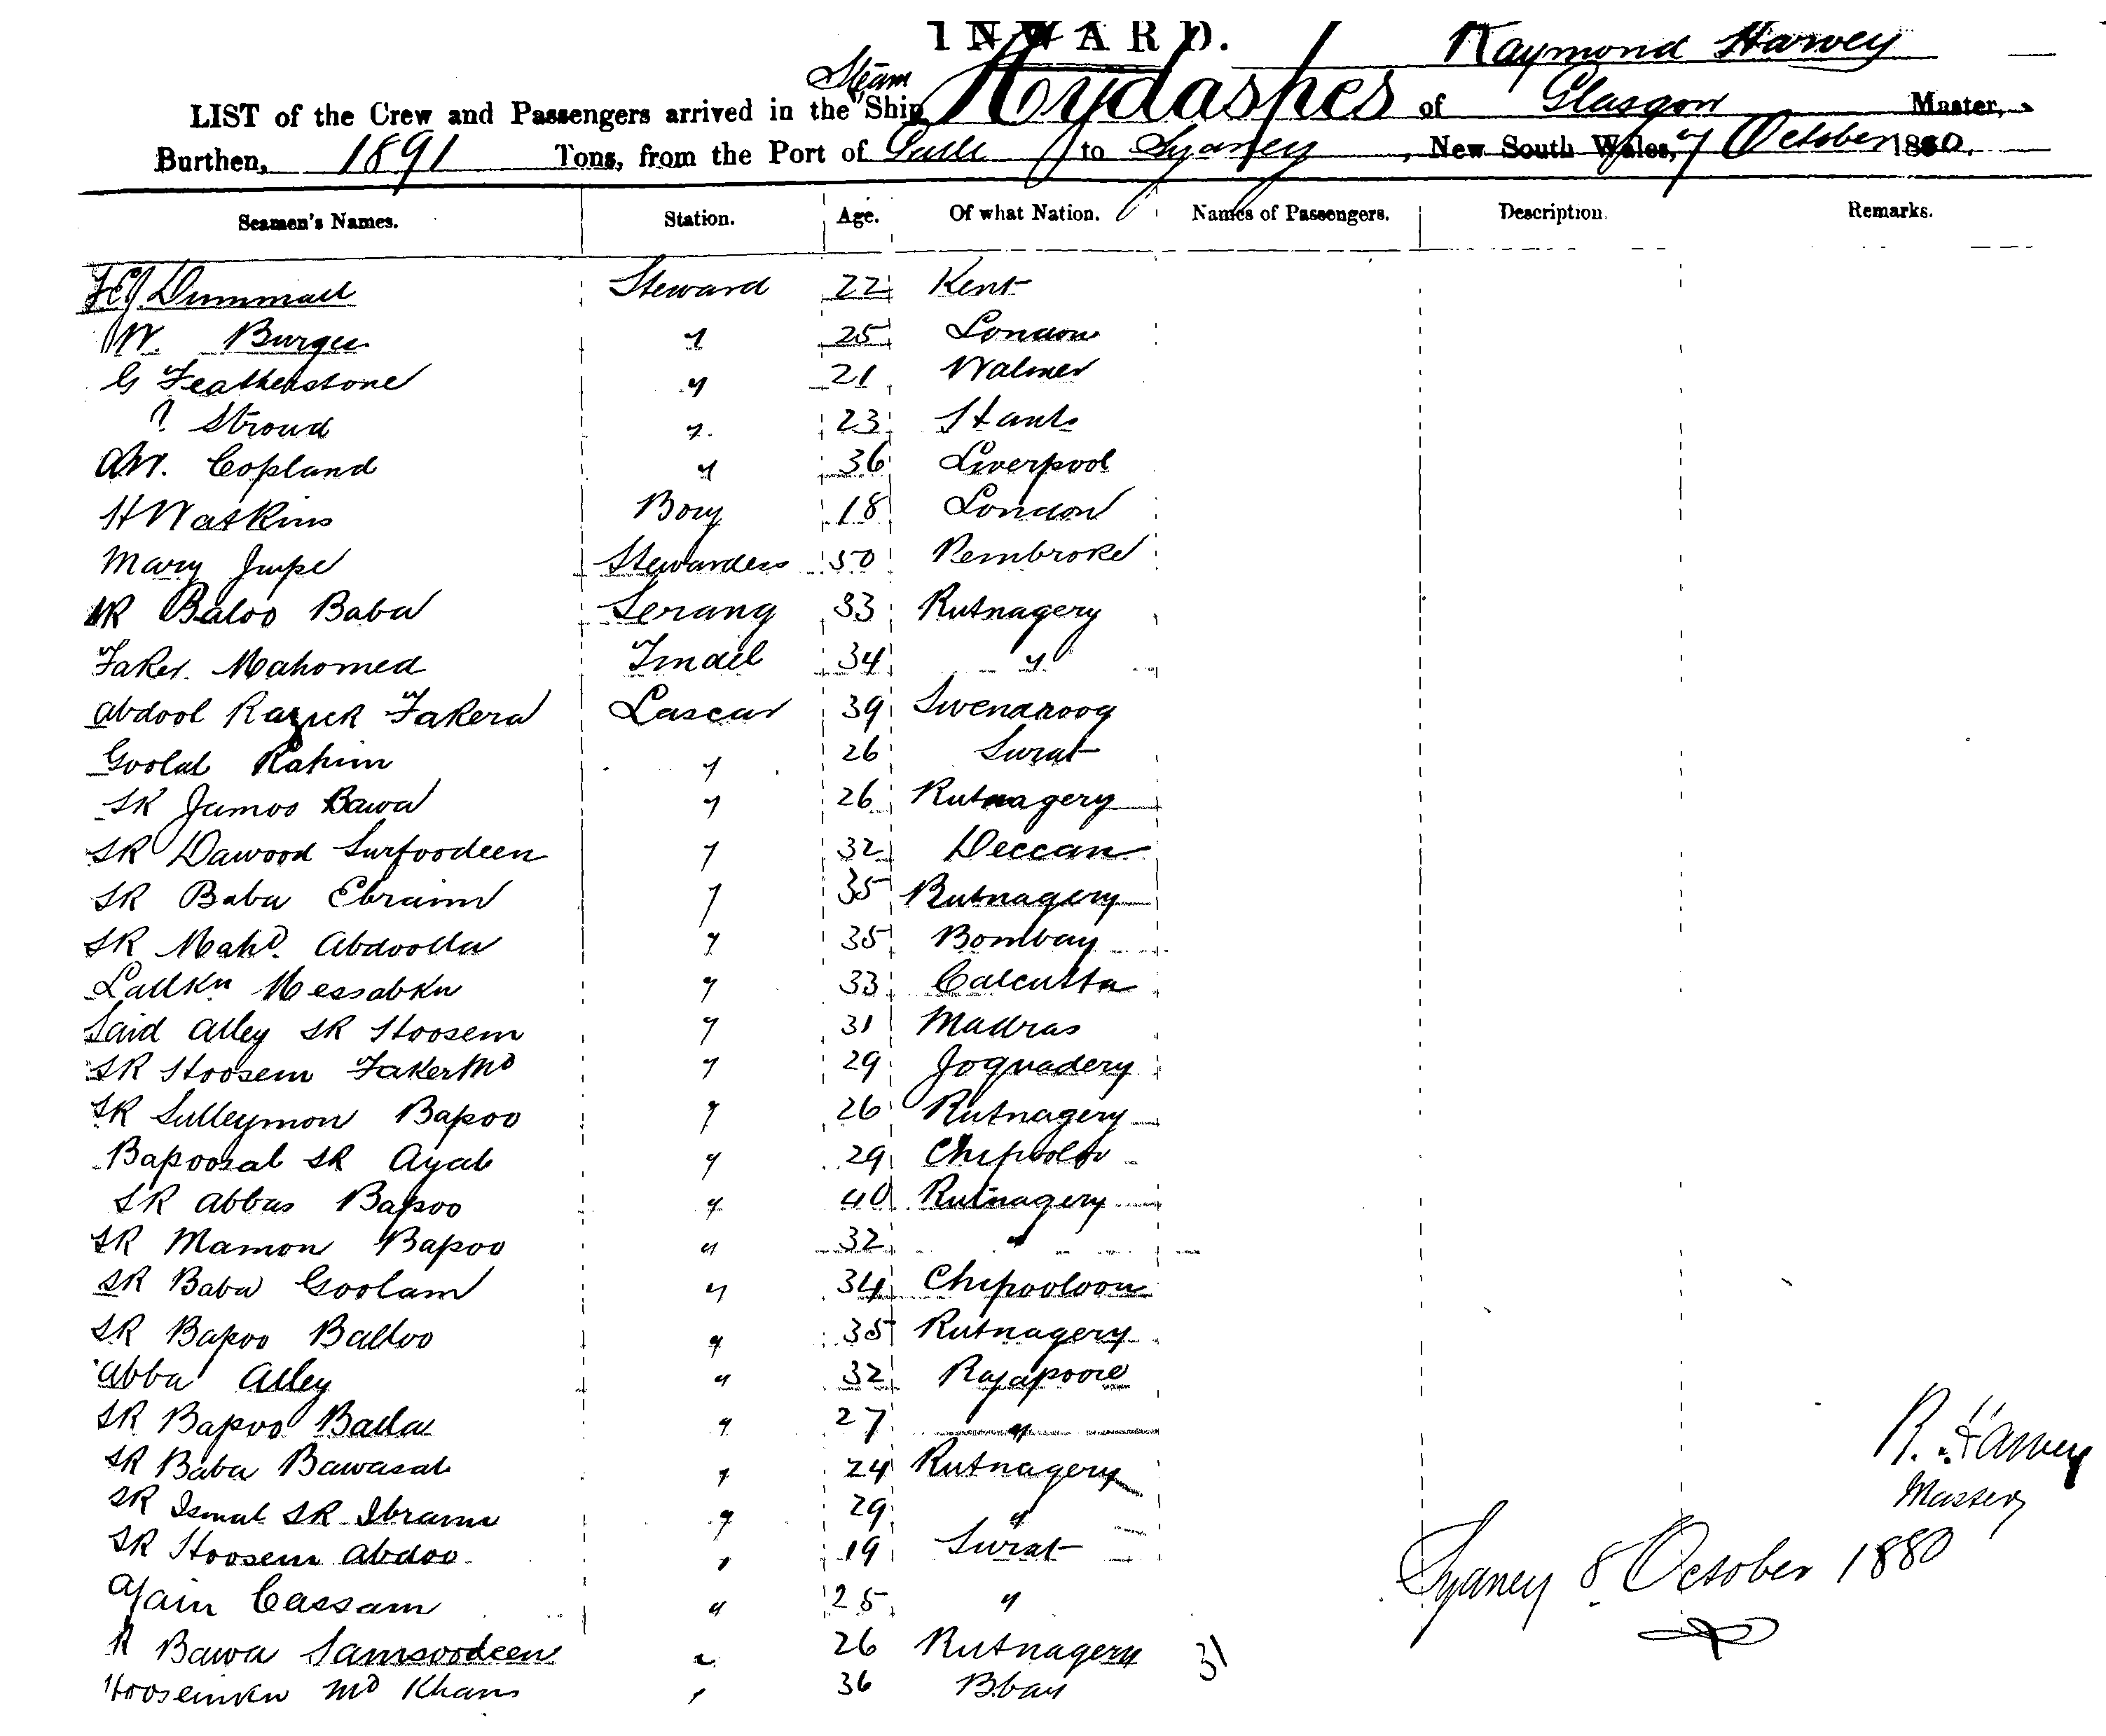 INWARD. Raymond Harvey
LIST of the Crew and Passengers arrived in the Steam Ship Hydaspes of Glasgow Master,
Burthen, 1891 Tons, from the Port of Galle to Sydney, New South Wales, 7 October 1880.
Seamen's Names. Station. Age. Of what Nation. Names of Passengers. Description. Remarks.
Steward 22 Kent
W. Burgess " 25 London
G Featherstone " 21 Walmer
Stroud " 23 Hants
AW. Copland " 36 Liverpool
H Watkins Boy 18 London
Mary Stewardess 50 Pembroke
SK Baloo Baba Serang 33 Rutnagery
Faker Mahomed Tindel 34 "
Abdool Razuck Fakera Lascar 39
Goolab Rahim " 26 Surat
SK Jamoo Bawa " 26 Rutnagery
SK Dawood Surfoodeen " 32 Deccan
SK Baba Ebraim " 35 Rutnagery
SK Mahd. Abdoolla " 35 Bombay
" 33 Calcutta
Said Alley SK Hoosem " 31 Madras
SK Hoosem Faker Md " 29
SK Sulleymon Bapoo " 26 Rutnagery
Bapoosab SK Ayab " 29
SK Abbas Bapoo " 40 Rutnagery
SK Mamon Bapoo " 32 "
SK Baba Goolam " 34 Chipooloon
SK Bapoo Balloo " 35 Rutnagery
Abba Alley " 32 Rajapoore
SK Bapoo Balla " 27 "
SK Baba Bawasab " 24 Rutnagery
SK Ismal SK Ibraim " 29 "
SK Hoosem Abdoo " 19 Surat
Cassam " 25 "
Bawa Samsoodeen " 26 Rutnagery 31
Md Khan " 36 B.bay
R. Harvey
Master
Sydney 8 October 1880